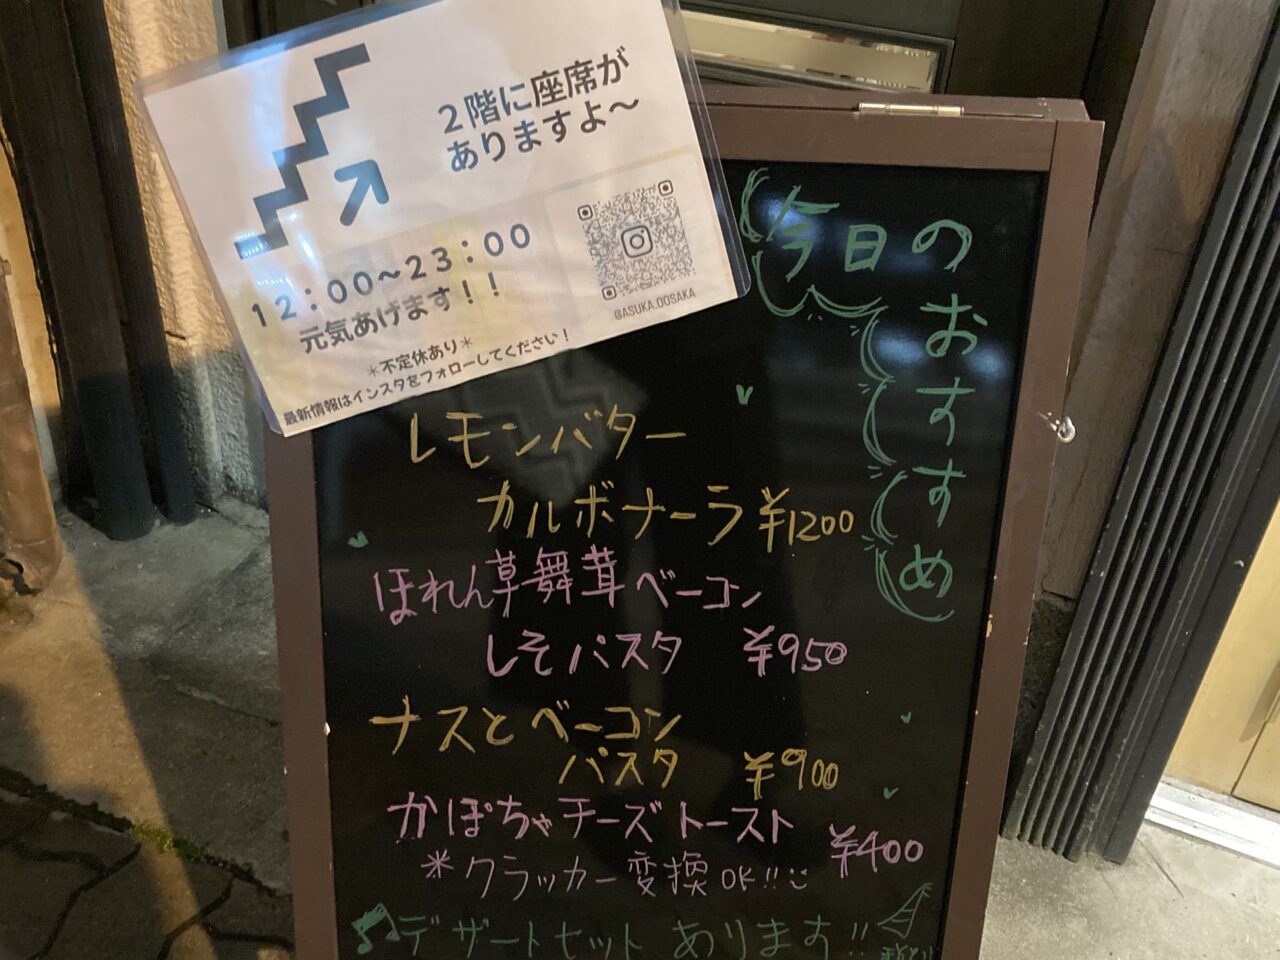 2階に座席が
ありますよ～
12：00～23：00
元気あげます！！
@ASUKA.OOSAKA
＊不定休あり＊
最新情報はインスタをフォローしてください！
今日のおすすめ
レモンバター
カルボナーラ ¥1200
ほれん草舞茸ベーコン
しそパスタ ¥950
ナスとベーコン
パスタ ¥900
かぽちゃチーズトースト
¥400
＊クラッカー変換OK!!
♪デザートセットあります!!